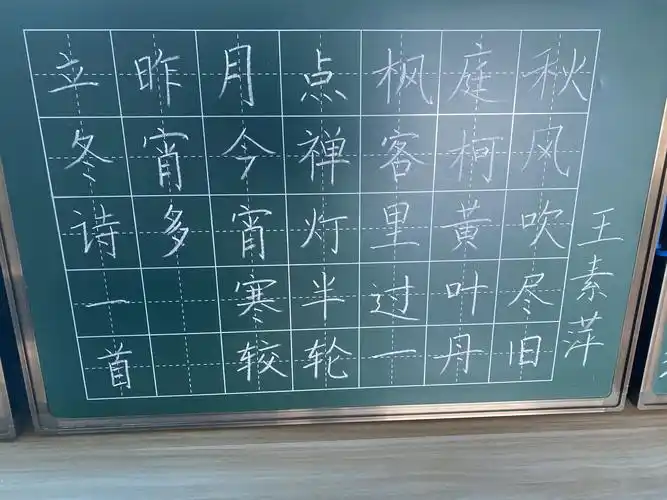 秋风吹尽旧
庭柯黄叶丹
枫客里过一
点禅灯半轮
月今宵寒较
昨宵多
立冬诗一首
王素萍